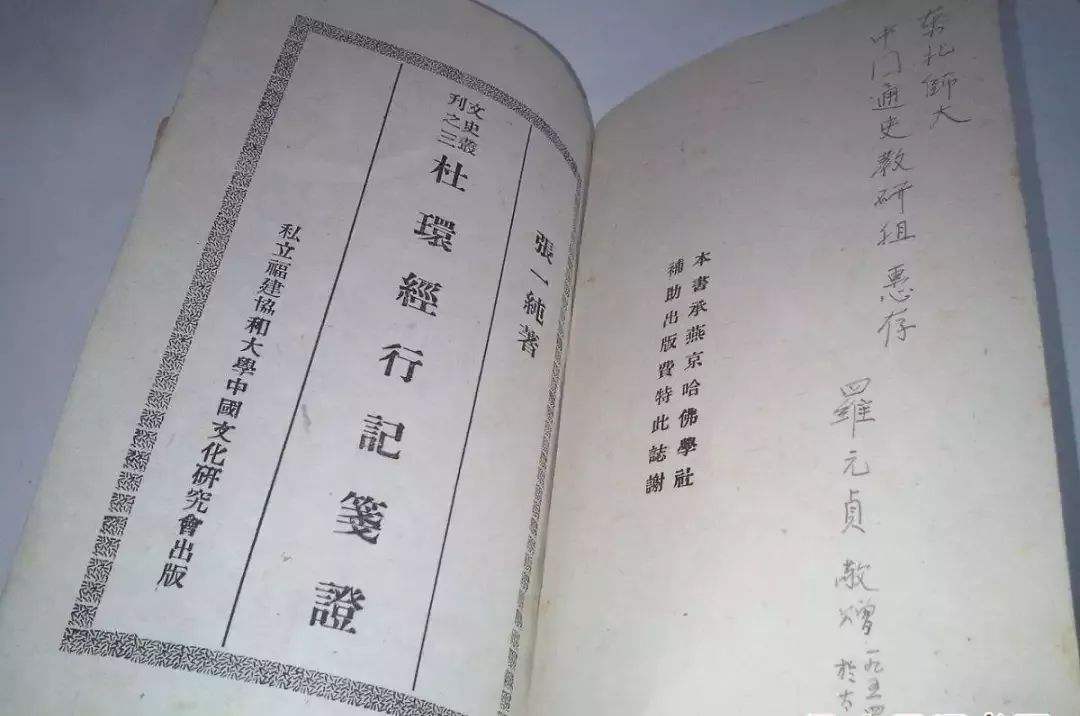 东北師大
中囗通史教研組 惠存
羅元貞 敬赠 一九五四
於古
本書承燕京哈佛學社
補助出版費特此誌謝
張一純著
文史叢
刊之三
杜環經行記箋證
私立福建協和大學中國文化研究會出版